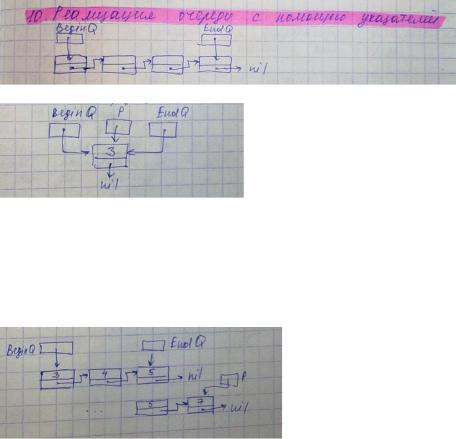 10 Реализация очереди с помощью указателей
BeginQ EndQ
nil
BeginQ P EndQ
3
nil
BeginQ EndQ
3 4 5 nil P
... 5 7 nil